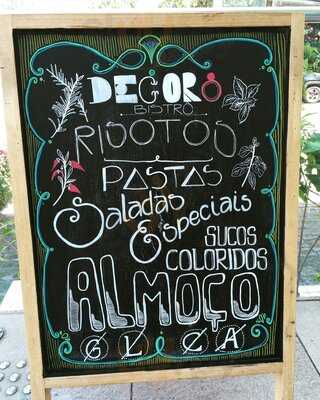 DEGORÔ
BISTRÔ
RISOTOS
E
PASTAS
Saladas
Especiais
SUCOS
COLORIDOS
ALMOÇO
G L C A